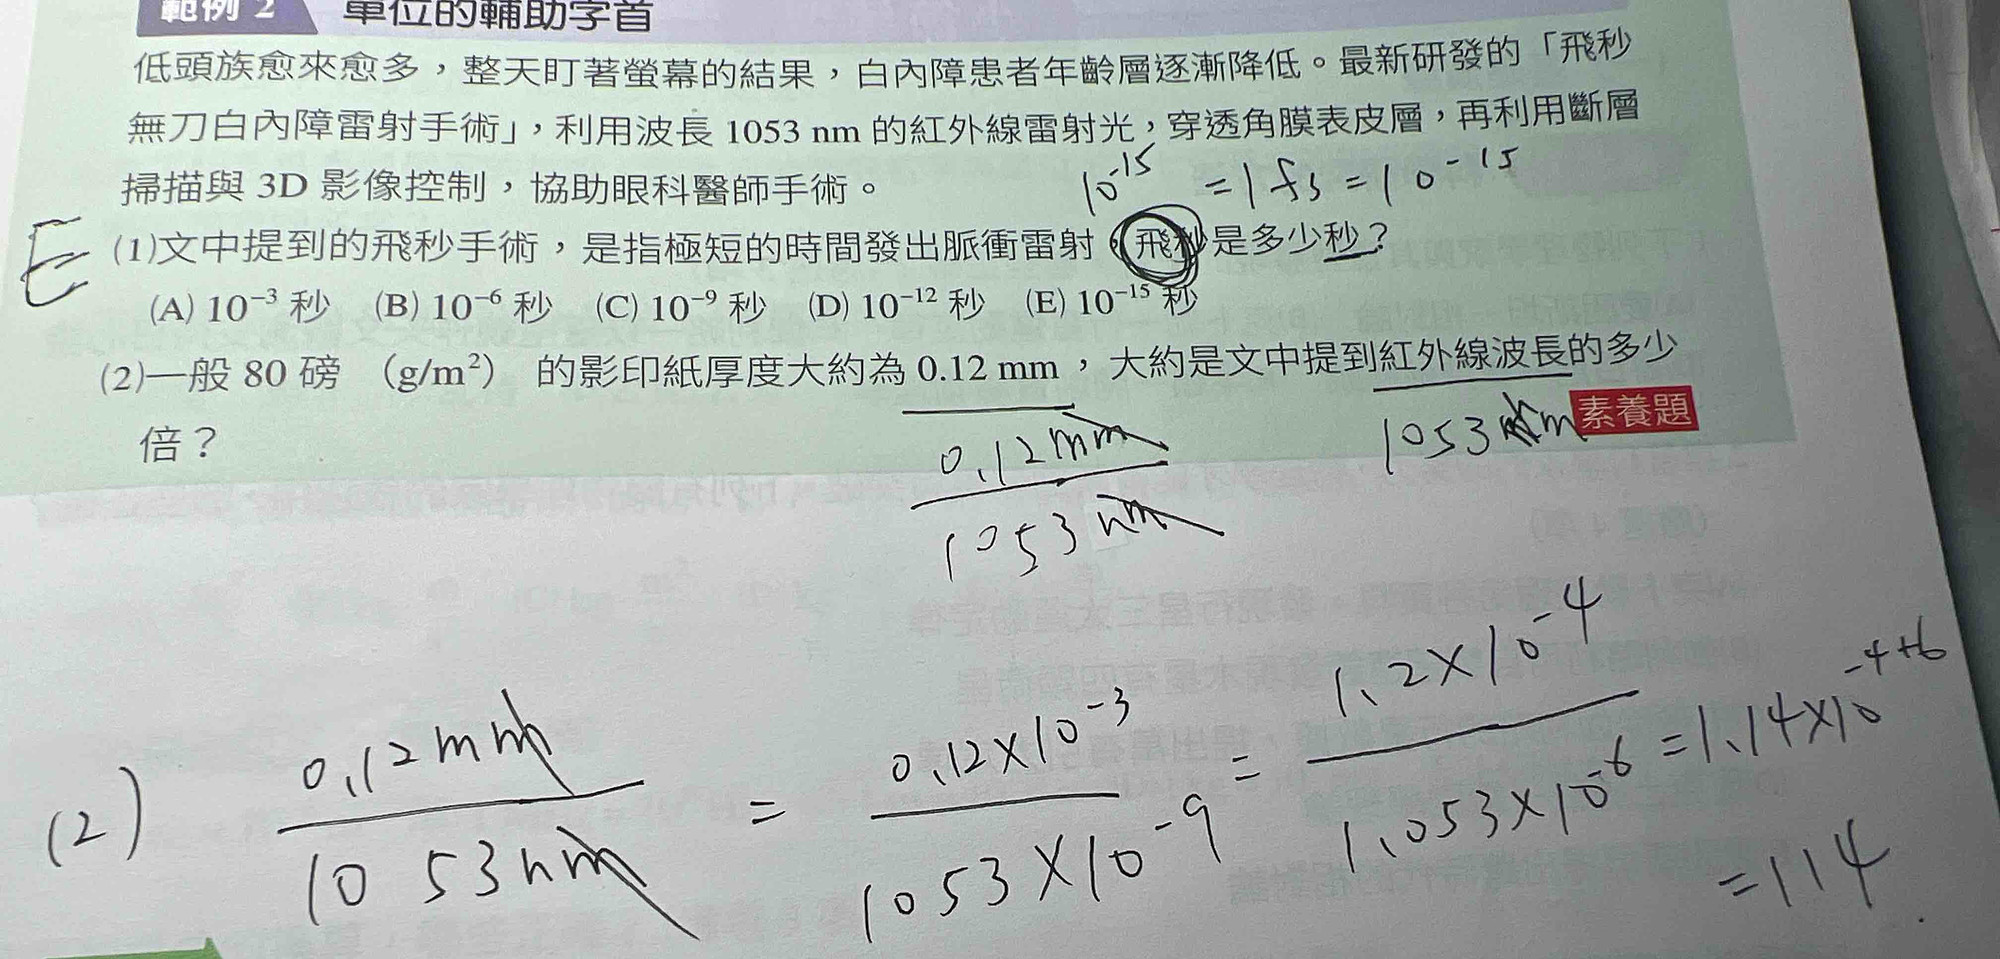 範例 2 單位的輔助字首
低頭族愈來愈多，整天盯著螢幕的結果，白內障患者年齡層逐漸降低。最新研發的「飛秒
無刀白內障雷射手術」，利用波長 1053 nm 的紅外線雷射光，穿透角膜表皮層，再利用斷層
掃描與 3D 影像控制，協助眼科醫師手術。
10⁻¹⁵ = 1 fs = 10⁻¹⁵
E
(1)文中提到的飛秒手術，是指極短的時間發出脈衝雷射，飛秒是多少秒？
(A) 10⁻³ 秒 (B) 10⁻⁶ 秒 (C) 10⁻⁹ 秒 (D) 10⁻¹² 秒 (E) 10⁻¹⁵ 秒
(2)一般 80 磅 （g/m²） 的影印紙厚度大約為 0.12 mm，大約是文中提到紅外線波長的多少
倍？
素養題
0.12mm
1053nm
1053nm
(2) 0.12mm / 1053nm = 0.12×10⁻³ / 1053×10⁻⁹ = 1.2×10⁻⁴ / 1.053×10⁻⁶ = 1.14×10⁻⁴⁺⁶
=114